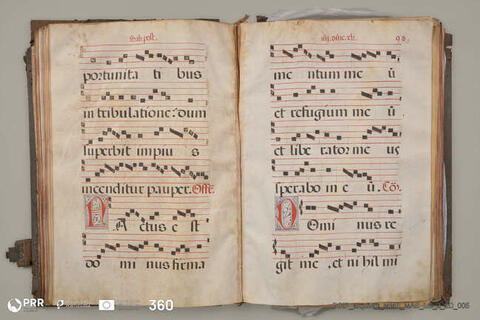 portunita ti bus
in tribulatione: dum
superbit impiu s
incenditur pauper. Off.
F Actus e st
do mi nus firma
me ntum me ũ
et refugium me ũ
et libe rator me us
sperabo in e ũ. Cō.
D Omi nus re
git me et ni hil mi
PRR
360